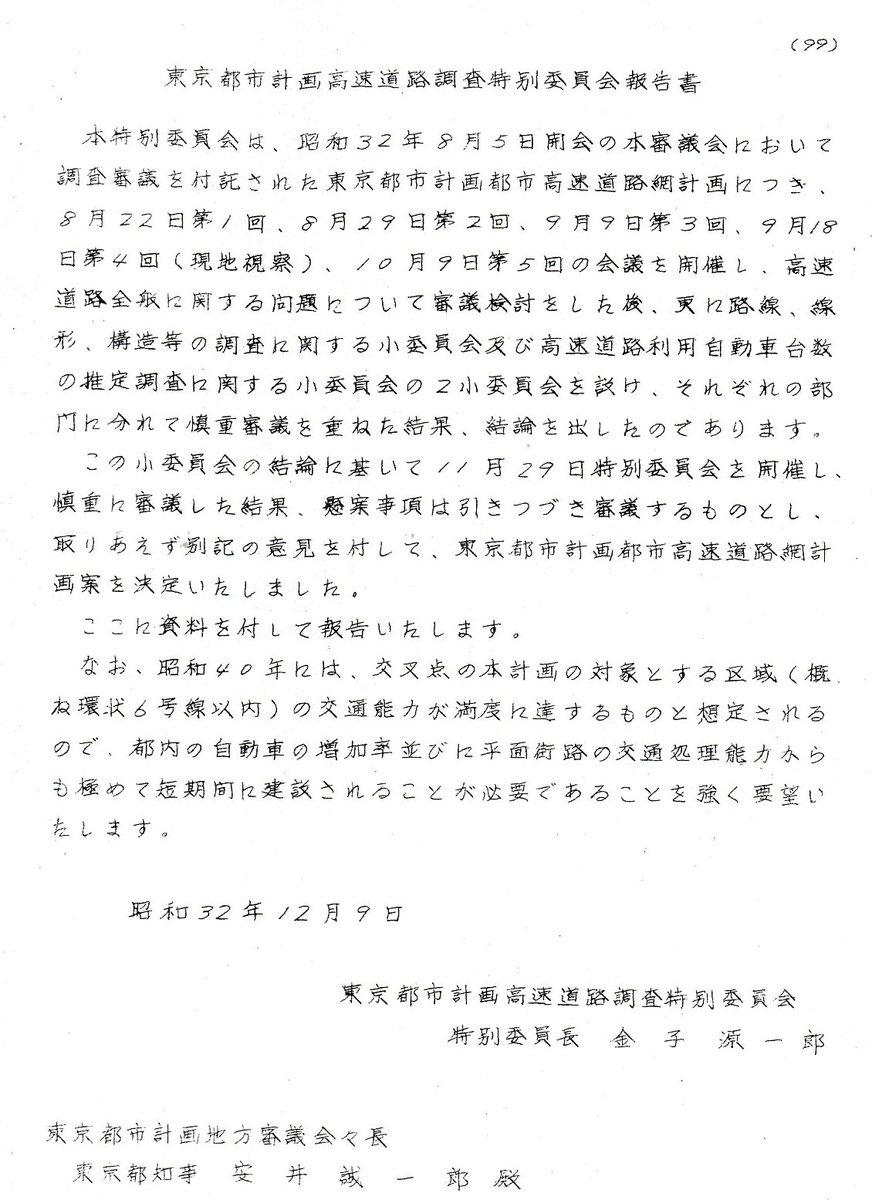 (99)
東京都市計画高速道路調査特別委員会報告書
本特別委員会は、昭和32年8月5日開会の本審議会において
調査審議を付託された東京都市計画都市高速道路網計画につき、
8月22日第1回、8月29日第2回、9月9日第3回、9月18
日第4回(現地視察)、10月9日第5回の会議を開催し、高速
道路全般に関する問題について審議検討をした後、更に路線、線
形、構造等の調査に関する小委員会及び高速道路利用自動車台数
の推定調査に関する小委員会の2小委員会を設け、それぞれの部
門に分れて慎重審議を重ねた結果、結論を出したのであります。
この小委員会の結論に基いて11月29日特別委員会を開催し、
慎重に審議した結果、懸案事項は引きつづき審議するものとし、
取りあえず別記の意見を付して、東京都市計画都市高速道路網計
画案を決定いたしました。
ここに資料を付して報告いたします。
なお、昭和40年には、交叉点の本計画の対象とする区域(概
ね環状6号線以内)の交通能力が満度に達するものと想定される
ので、都内の自動車の増加率並びに平面街路の交通処理能力から
も極めて短期間に建設されることが必要であることを強く要望い
たします。
昭和32年12月9日
東京都市計画高速道路調査特別委員会
特別委員長 金子源一郎
東京都市計画地方審議会々長
東京都知事 安井誠一郎殿